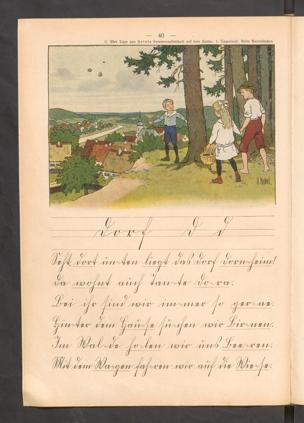 — 40 —
dorf d d
Seht dort un-ten liegt das dorf dorn-heim!
da wohnt auch Tan-te do-ra.
Bei ihr sind wir im-mer so ger-ne.
Hin-ter dem Hau-se su-chen wir Bir-nen.
Im Wal-de ho-len wir uns Bee-ren.
Mit dem Wa-gen fah-ren wir auf die Wie-se.